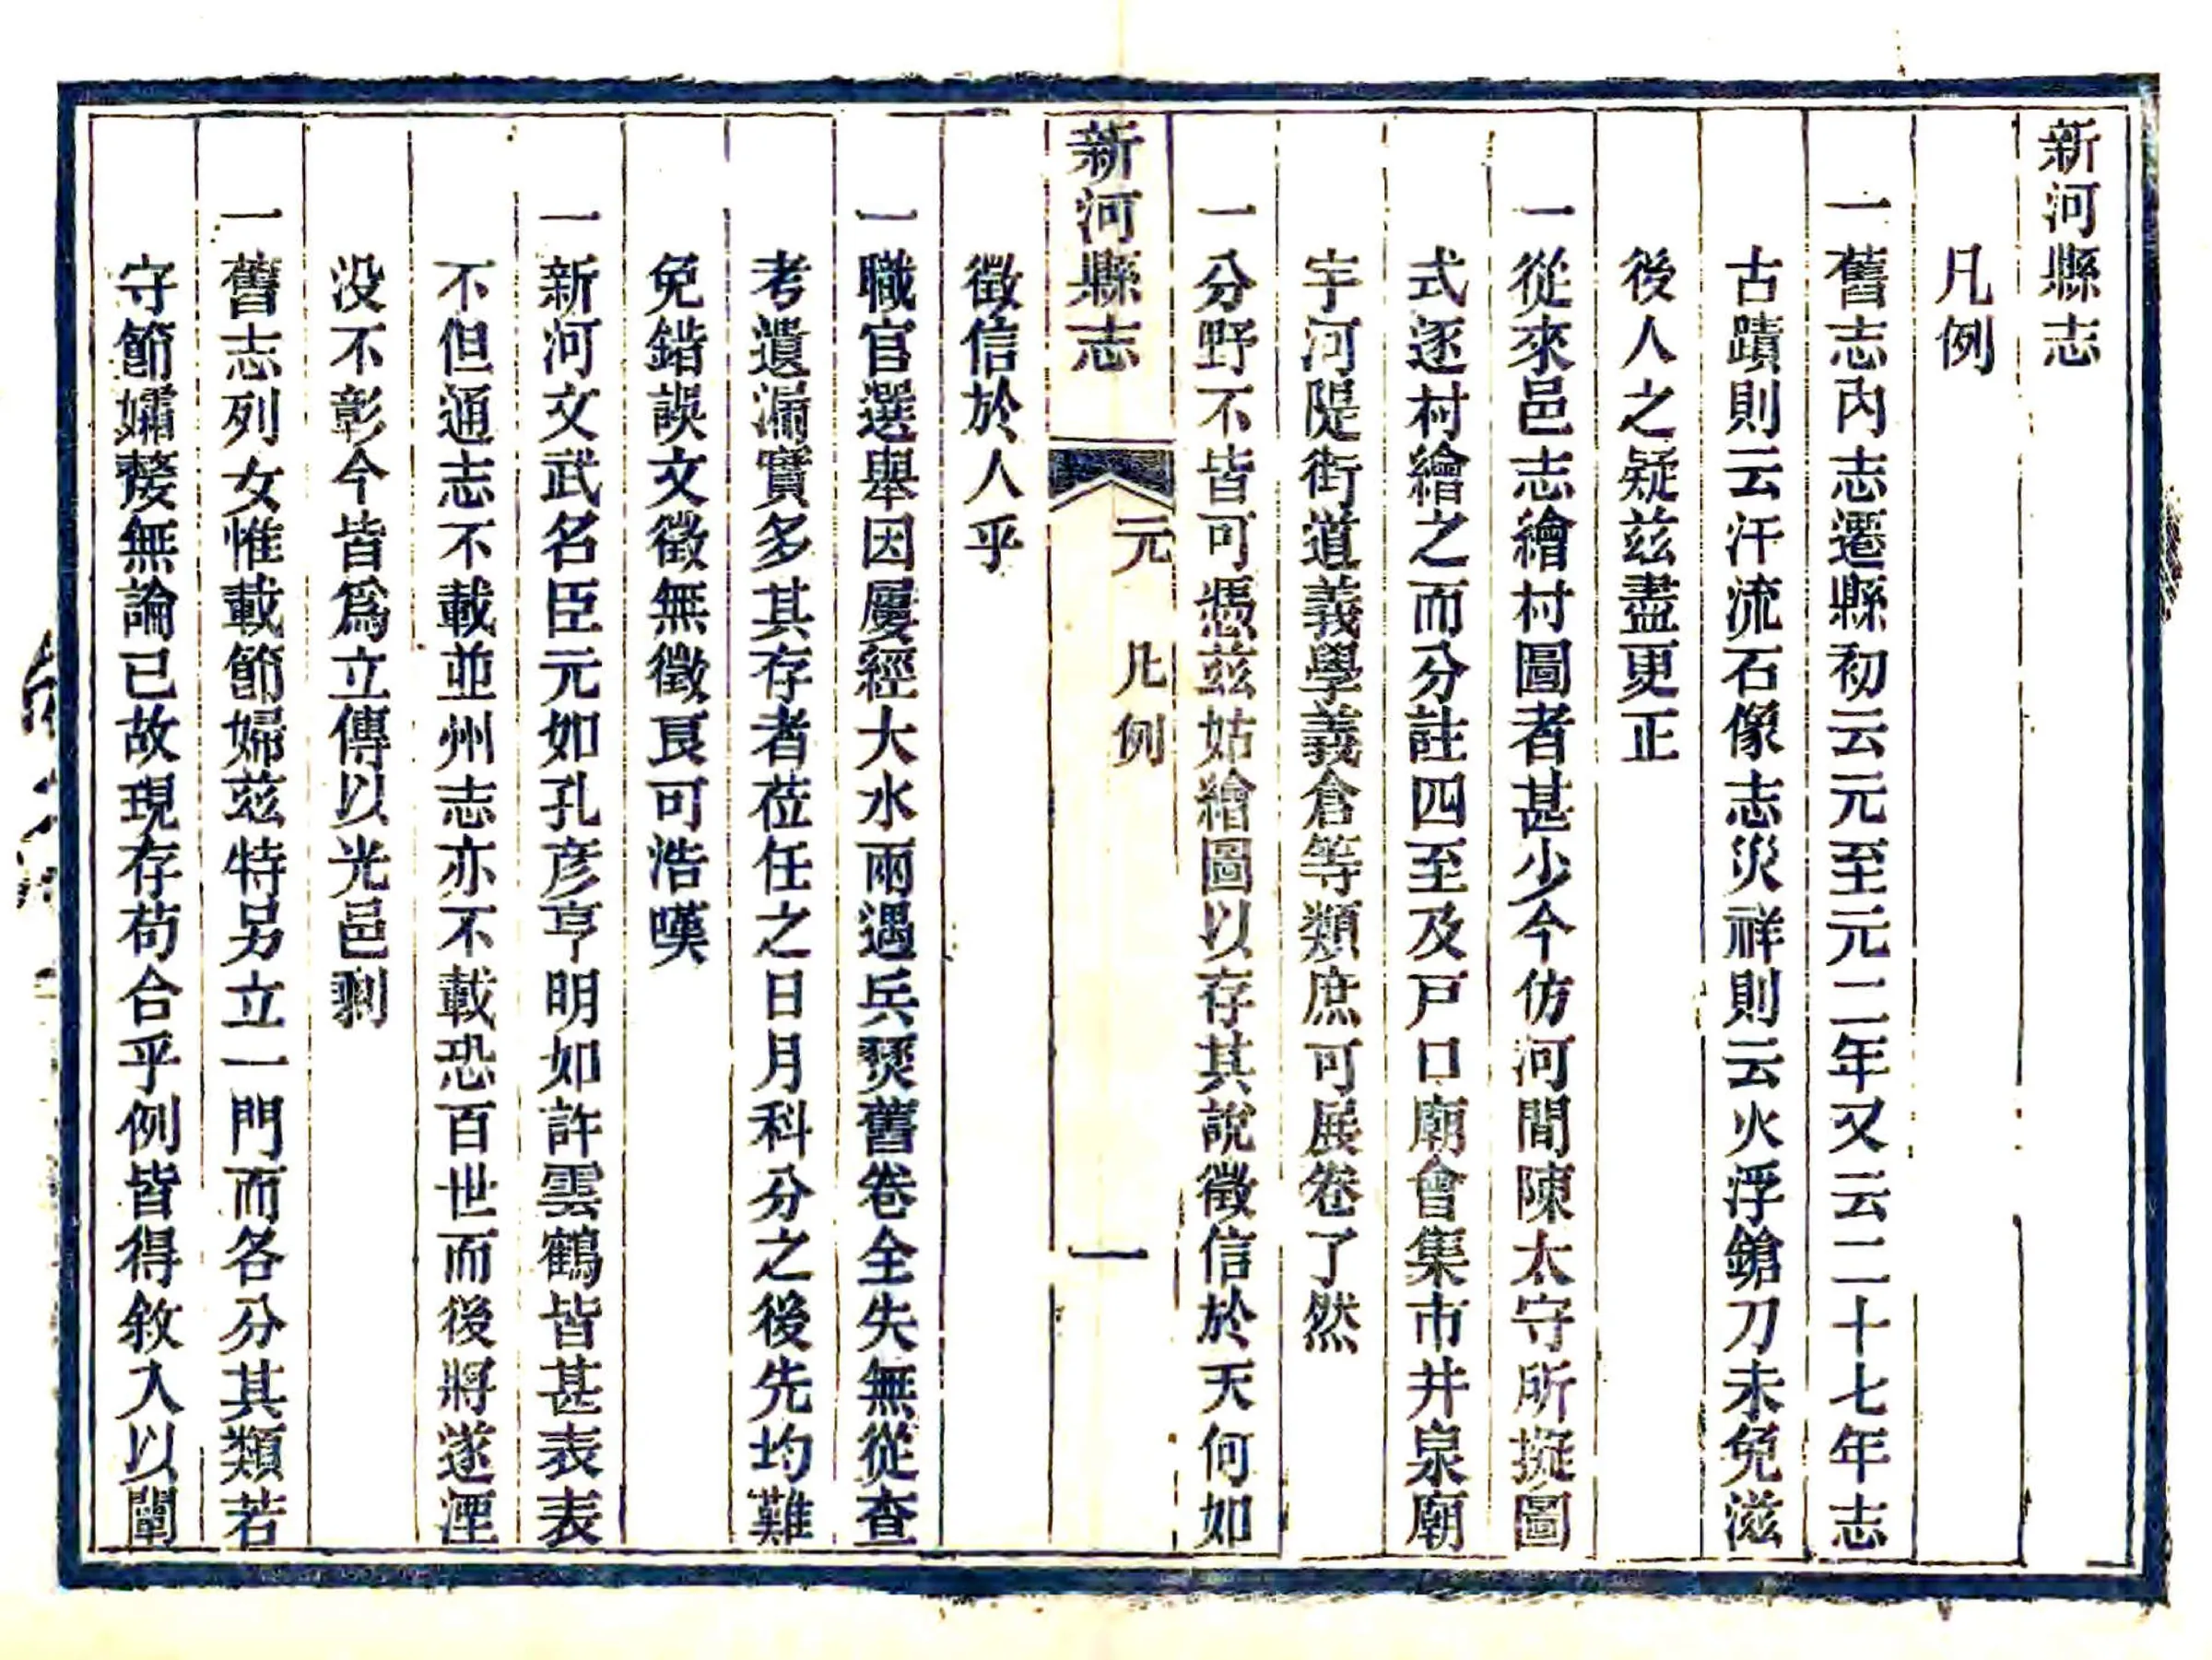 新河縣志
凡例
一舊志內志遷縣初云元至元二年又云二十七年志
古蹟則云汗流石像志災祥則云火浮鎗刀未免滋
後人之疑茲盡更正
一從來邑志繪村圖者甚少今仿河間陳太守所擬圖
式逐村繪之而分註四至及戸口廟會集市井泉廟
宇河隄街道義學義倉等類庶可展卷了然
一分野不皆可憑茲姑繪圖以存其說徵信於天何如
新河縣志 元 凡例 一
徵信於人乎
一職官選舉因屢經大水兩遇兵燹舊卷全失無從查
考遺漏實多其存者莅任之日月科分之後先均難
免錯誤文徵無徵良可浩嘆
一新河文武名臣元如孔彦亨明如許雲鶴皆甚表表
不但通志不載並州志亦不載恐百世而後將遂湮
没不彰今皆爲立傳以光邑剩
一舊志列女惟載節婦茲特另立一門而各分其類若
守節孀嫠無論已故現存苟合乎例皆得敘入以闡